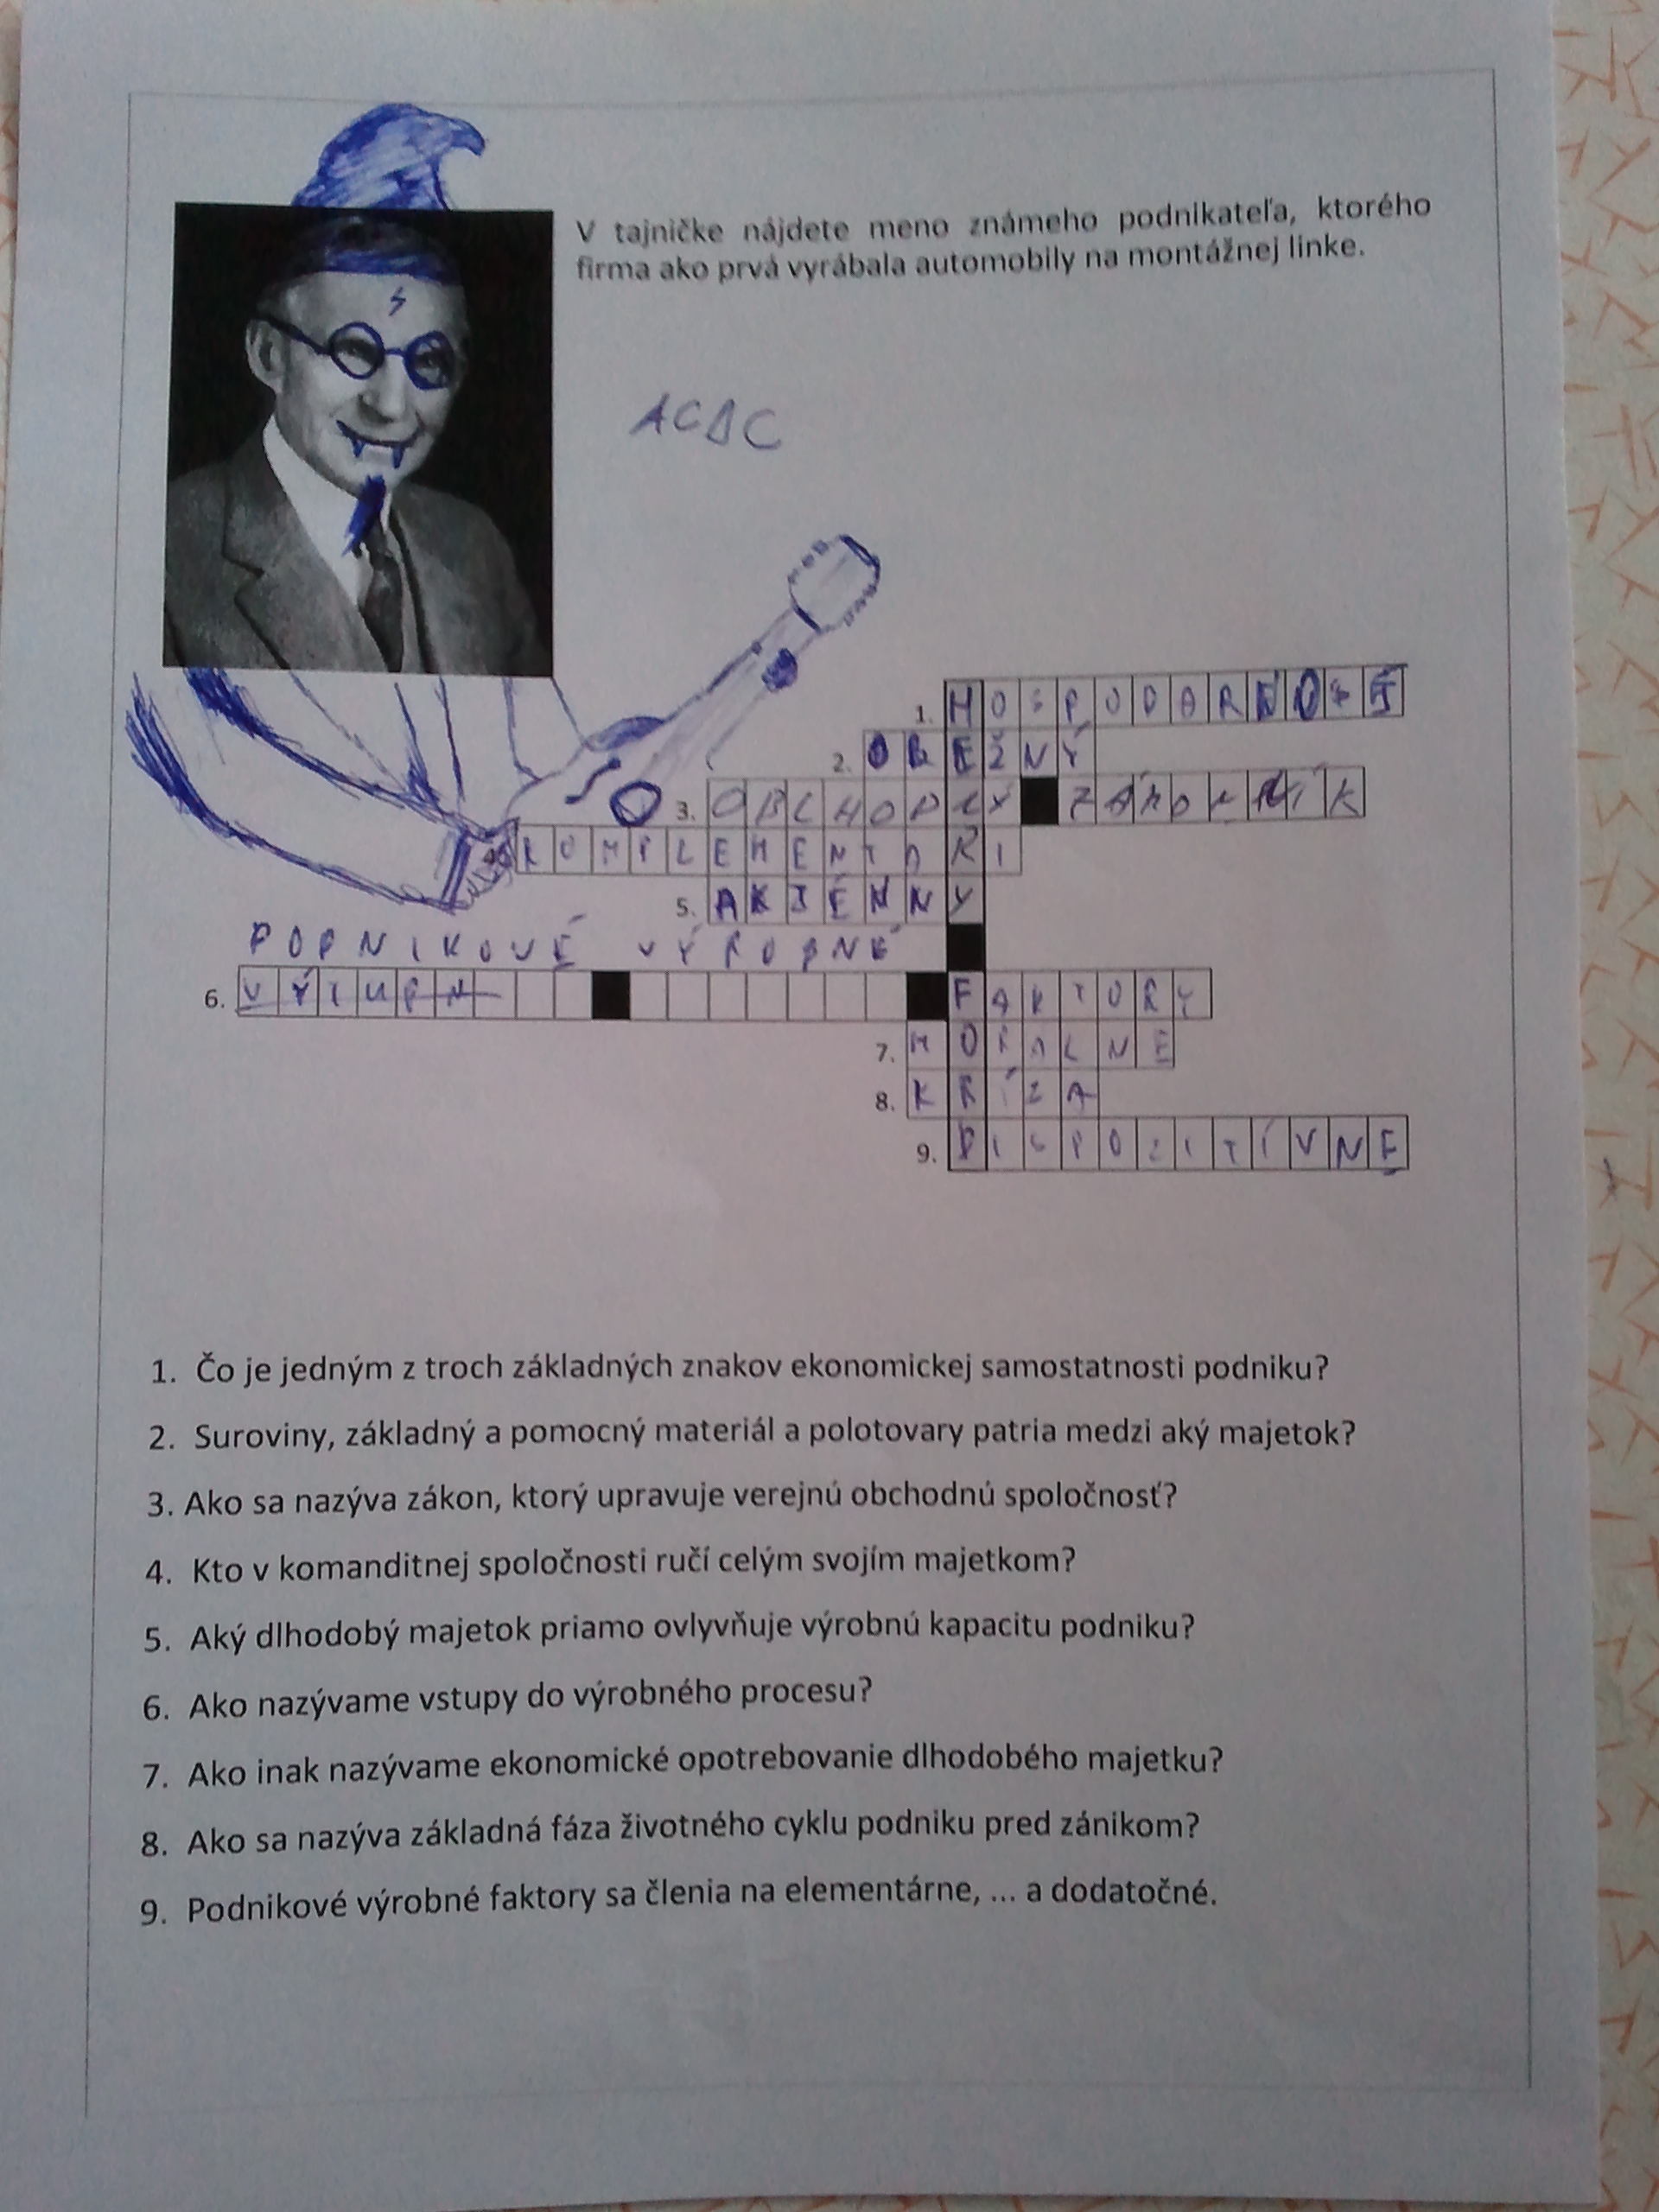 V tajničke nájdete meno známeho podnikateľa, ktorého
firma ako prvá vyrábala automobily na montážnej linke.
ACDC
1. HOSPODARNOSŤ
2. OBEŽNÝ
3. OBCHODNY ZÁKONNÍK
4. KOMPLEMENTARI
5. AKTÉNNY
PODNIKOVÉ VÝROBNÉ
6. VÝTUPN FAKTORY
7. MORALNE
8. KRÍZA
9. DISPOZITÍVNE
1. Čo je jedným z troch základných znakov ekonomickej samostatnosti podniku?
2. Suroviny, základný a pomocný materiál a polotovary patria medzi aký majetok?
3. Ako sa nazýva zákon, ktorý upravuje verejnú obchodnú spoločnosť?
4. Kto v komanditnej spoločnosti ručí celým svojím majetkom?
5. Aký dlhodobý majetok priamo ovlyvňuje výrobnú kapacitu podniku?
6. Ako nazývame vstupy do výrobného procesu?
7. Ako inak nazývame ekonomické opotrebovanie dlhodobého majetku?
8. Ako sa nazýva základná fáza životného cyklu podniku pred zánikom?
9. Podnikové výrobné faktory sa členia na elementárne, ... a dodatočné.